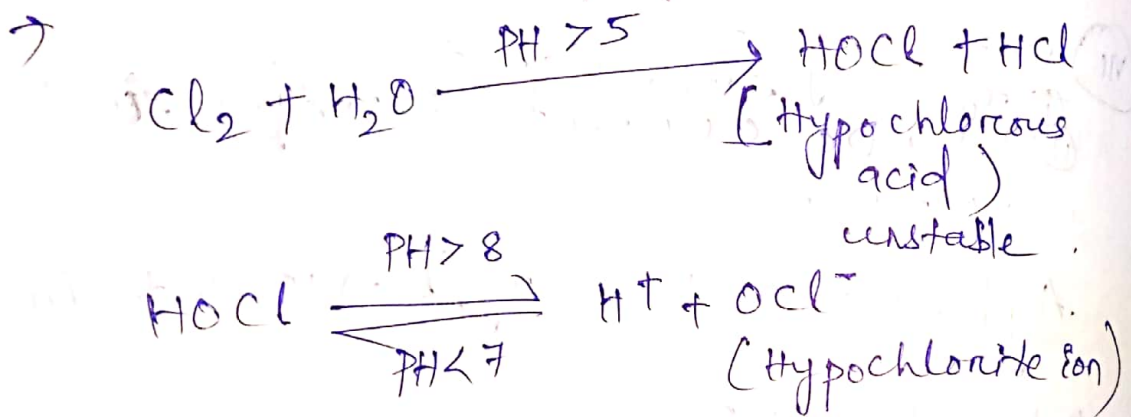 → Cl₂ + H₂O —PH >5→ HOCl + HCl
[Hypochlorous
acid)
unstable.
HOCl ⇌ H⁺ + OCl⁻
PH> 8
PH<7
(Hypochlorite ion)